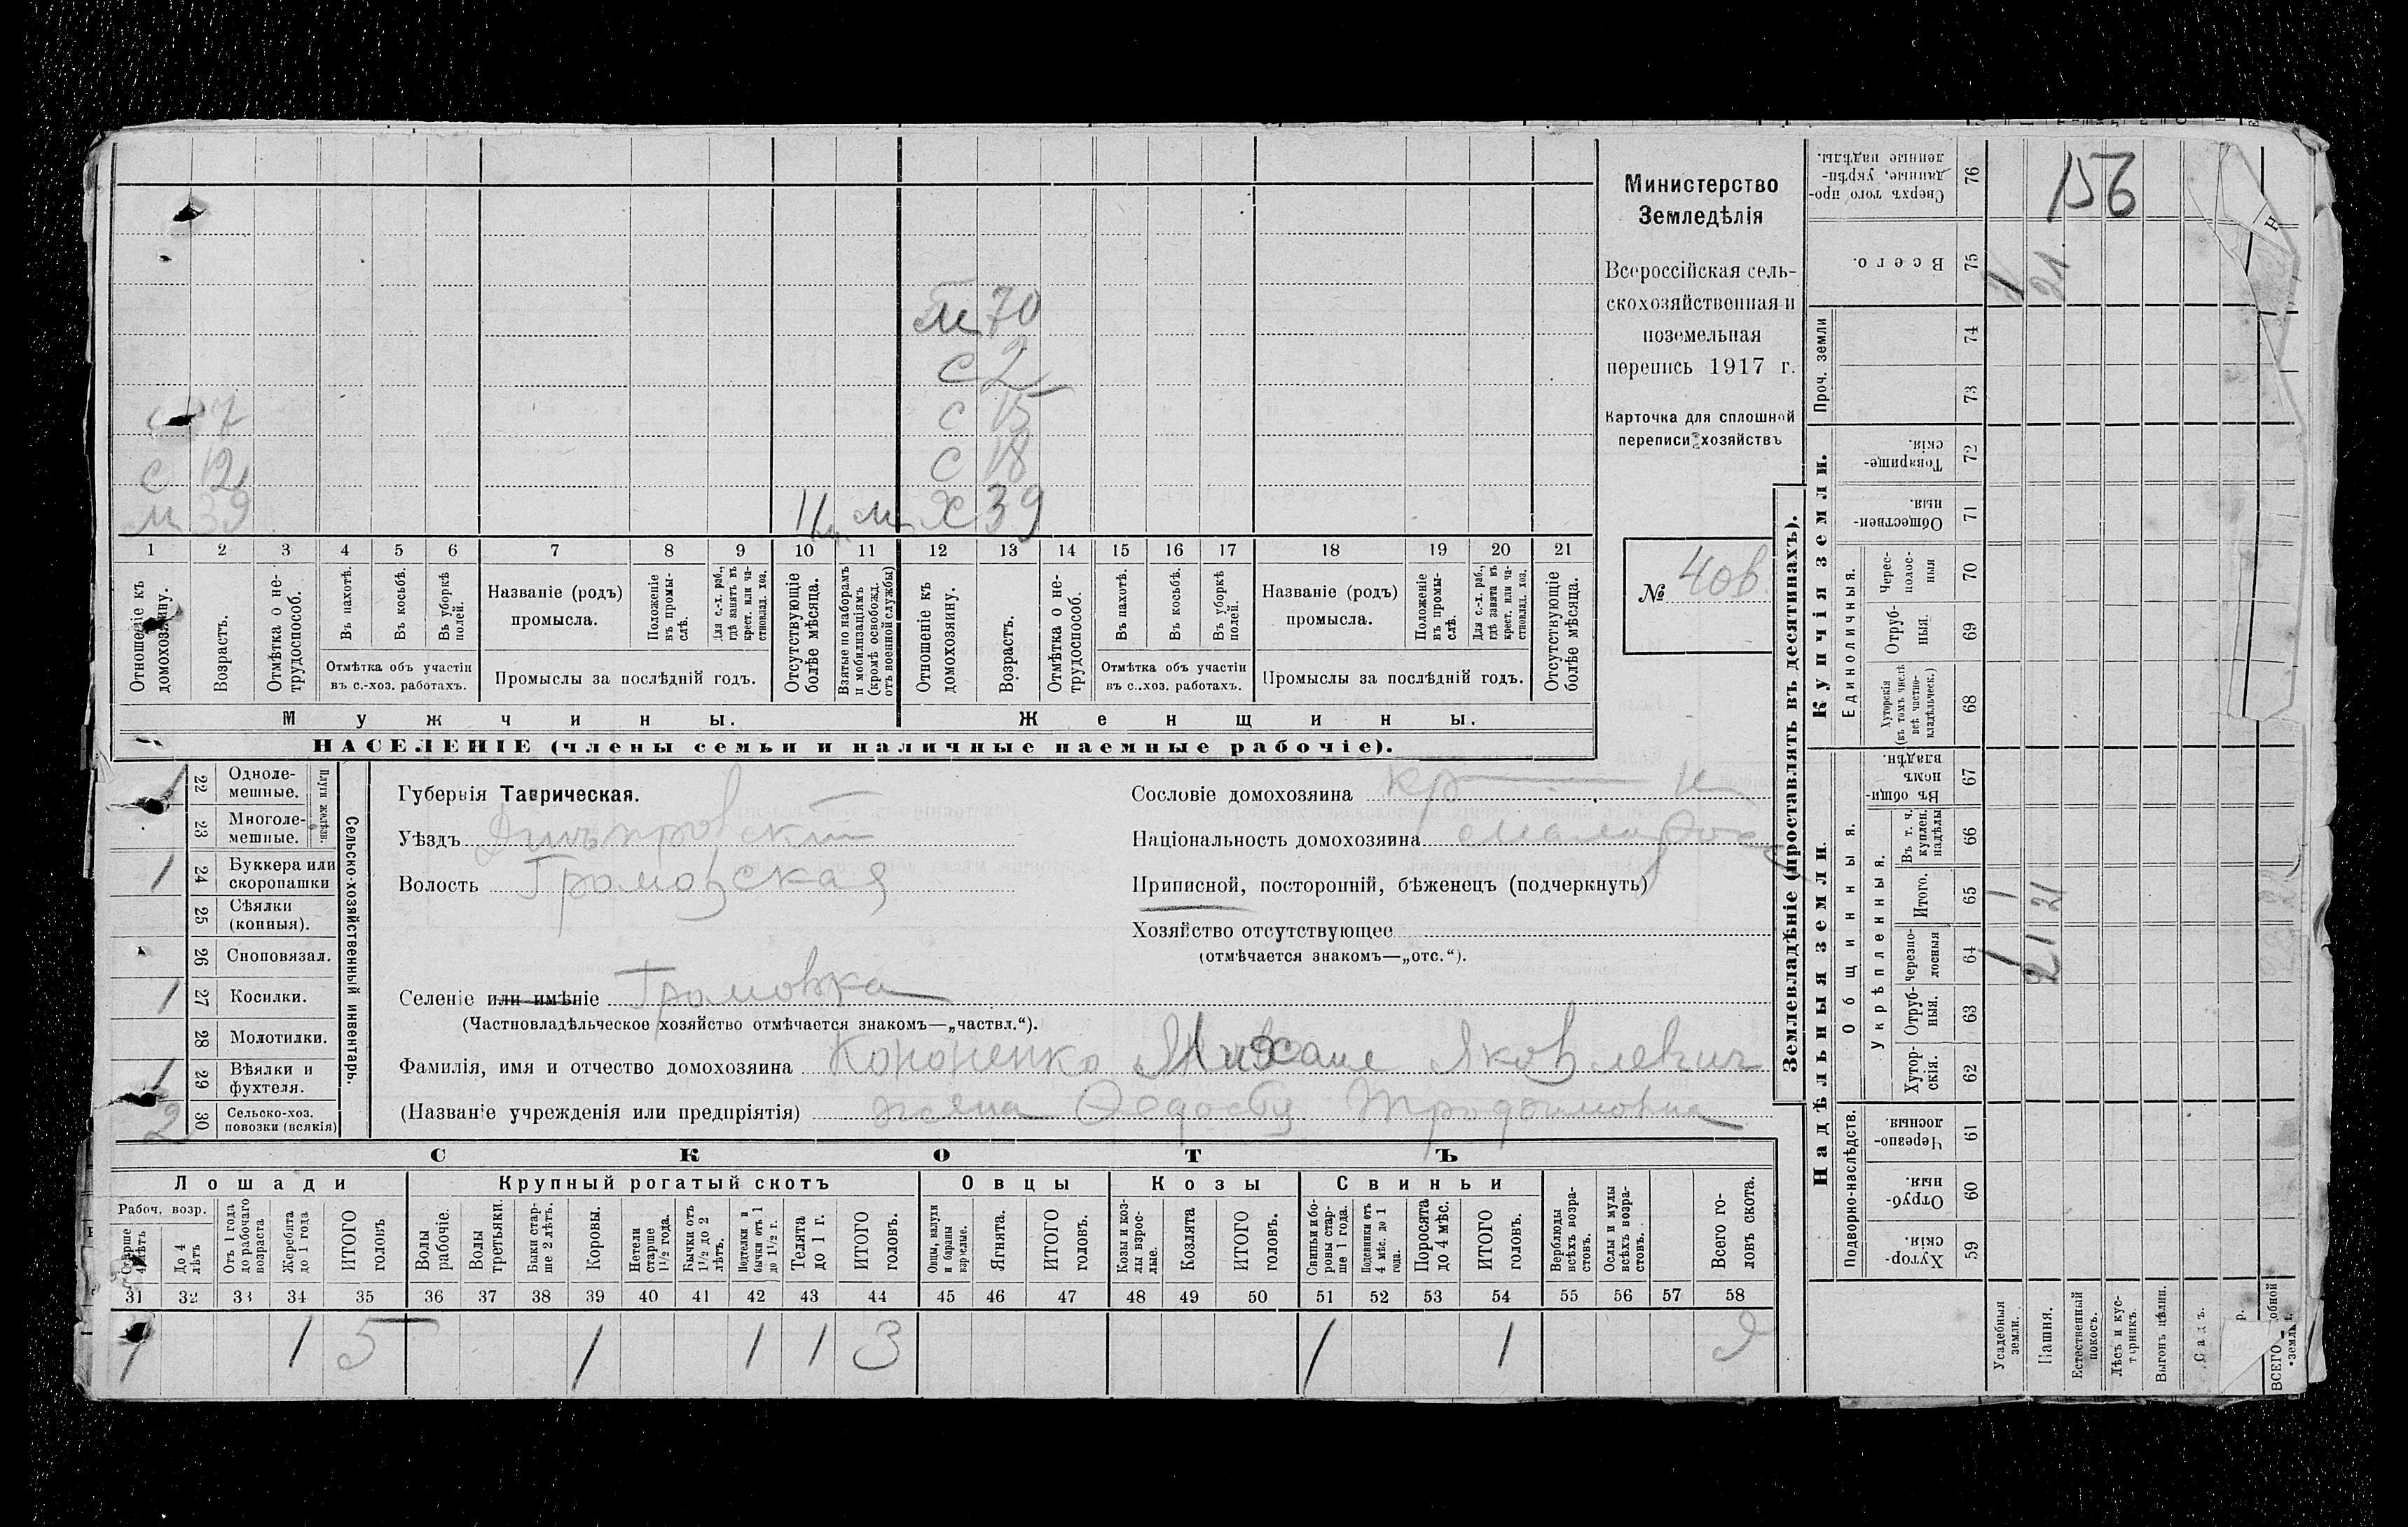 Министерство
Земледѣлія
Всероссійская сель-
скохозяйственная и
поземельная
перепись 1917 г.
Карточка для сплошной
переписи хозяйствъ
№ 40в
156
м 70
с 2
с 7 с 15
с 12 с 18
м 39 м Х 39
1 2 3 4 5 6 7 8 9 10 11 12 13 14 15 16 17 18 19 20 21
Отношеніе къ домохозяину.
Возрастъ.
Отмѣтка о не-трудоспособ.
Въ пахотѣ.
Въ косьбѣ.
Въ уборкѣ полей.
Отмѣтка объ участіи
въ с.-хоз. работахъ.
Названіе (родъ)
промысла.
Положеніе въ промы-слѣ.
Для с.-х. раб., гдѣ занятъ въ крест. или ча-стновлад. хоз.
Промыслы за послѣдній годъ.
Отсутствующіе болѣе мѣсяца.
Взятые по наборамъ и мобилизаціямъ (кромѣ освобожд. отъ военной службы)
Отношеніе къ домохозяину.
Возрастъ.
Отмѣтка о не-трудоспособ.
Въ пахотѣ.
Въ косьбѣ.
Въ уборкѣ полей.
Отмѣтка объ участіи
въ с.-хоз. работахъ.
Названіе (родъ)
промысла.
Положеніе въ промы-слѣ.
Для с.-х. раб., гдѣ занята въ крест. или ча-стновлад. хоз.
Промыслы за послѣдній годъ.
Отсутствующіе болѣе мѣсяца.
Мужчины. Женщины.
НАСЕЛЕНІЕ (члены семьи и наличные наемные рабочіе).
Сельско-хозяйственный инвентарь.
Плуги желѣзн.
1 22 Одноле-мешные.
23 Многоле-мешные.
1 24 Буккера или скоропашки
25 Сѣялки (конныя).
26 Сноповязал.
1 27 Косилки.
28 Молотилки.
1 29 Вѣялки и фухтеля.
2 30 Сельско-хоз. повозки (всякія)
Губернія Таврическая.
Уѣздъ Днѣпровскій
Волость Громовская
Селеніе или имѣніе Громовка
(Частновладѣльческое хозяйство отмѣчается знакомъ—„частвл.“).
Фамилія, имя и отчество домохозяина Кононенко Михаил Яковлевич
(Названіе учрежденія или предпріятія) жена Федостья Трофимовна
Сословіе домохозяина кр — н
Національность домохозяина малорос
Приписной, посторонній, бѣженецъ (подчеркнуть)
Хозяйство отсутствующее
(отмѣчается знакомъ—„отс.“).
СКОТЪ
Лошади Крупный рогатый скотъ Овцы Козы Свиньи
Рабоч. возр.
Старше 4 лѣтъ
До 4 лѣтъ
Отъ 1 года до рабочаго возраста
Жеребята до 1 года
ИТОГО головъ
Волы рабочіе.
Волы третьяки.
Быки стар-ше 2 лѣтъ.
Коровы.
Нетели старше 1½ года.
Бычки отъ 1½ до 2 лѣтъ.
Подтелки и бычки отъ 1 до 1½ г.
Телята до 1 г.
ИТОГО головъ.
Овцы, валухи и бараны взрослые.
Ягнята.
ИТОГО головъ.
Козы и коз-лы взрос-лые.
Козлята
ИТОГО головъ.
Свиньи и бо-ровы стар-ше 1 года.
Подсвинки отъ 4 мѣс. до 1 года.
Поросята до 4 мѣс.
ИТОГО головъ.
Верблюды всѣхъ возра-стовъ.
Ослы и мулы всѣхъ возра-стовъ.
Всего го-ловъ скота.
31 32 33 34 35 36 37 38 39 40 41 42 43 44 45 46 47 48 49 50 51 52 53 54 55 56 57 58
1 5 1 1 1 3 1 1 9
Землевладѣніе (проставлять въ десятинахъ).
Надѣльныя земли.
Купчія земли.
Проч. земли
Подворно-наслѣдств.
Общинныя.
Укрѣпленныя.
Единоличныя.
Сверхъ того про-данные, укрѣп-ленные надѣлы. 76
Всего. 75 1 21.
74
73
Товарище-скія. 72
Обществен-ныя. 71
Черес-полос-ныя 70
Отруб-ныя. 69
Хуторскія (въ томъ числѣ всѣ частно-владѣльческ.) 68
Въ общин-номъ владѣн. 67
Въ т. ч. куплен. надѣлы 66
Итого. 65 1 21
Черезпо-лосныя 64 1 21
Отруб-ныя. 63
Хутор-скія. 62
Черезпо-лосныя. 61
Отруб-ныя. 60
Хутор-скія. 59
Усадебныя земли.
Пашня.
Естественный покосъ.
Лѣсъ и кус-тарникъ.
Выгонъ цѣлин.
Садъ.
ВСЕГО